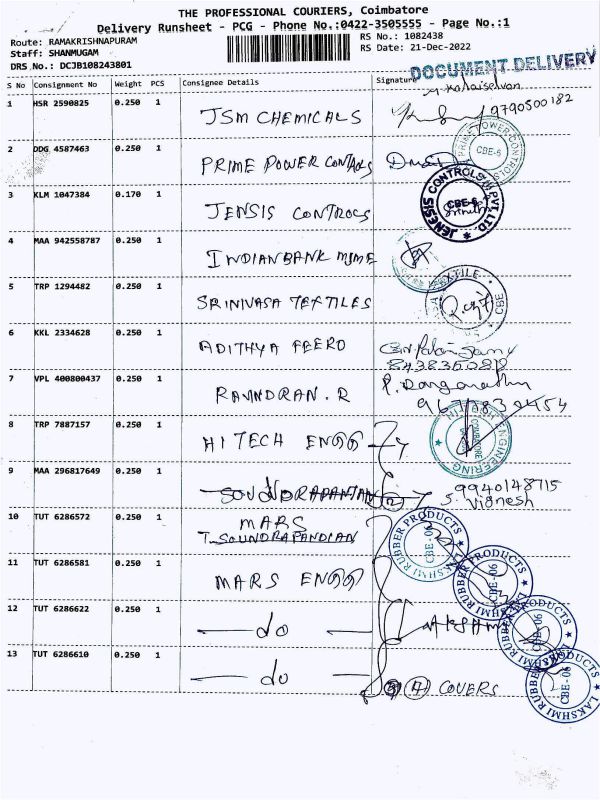 THE PROFESSIONAL COURIERS, Coimbatore
Delivery Runsheet - PCG - Phone No.:0422-3505555 - Page No.:1
Route: RAMAKRISHNAPURAM
Staff: SHANMUGAM
DRS No.: DCJB108243801
RS No.: 1082438
RS Date: 21-Dec-2022
DOCUMENT DELIVERY
S No Consignment No Weight PCS Consignee Details Signature
1 HSR 2590825 0.250 1 JSM CHEMICALS 9790500182
2 DDG 4587463 0.250 1 PRIME POWER CONTROLS
PRIME POWER CONTROLS CBE-6
3 KLM 1047384 0.170 1 JENSIS CONTROLS
JENESIS CONTROLS (I) PVT. LTD. CBE-6
4 MAA 942558787 0.250 1 INDIANBANK MSME
5 TRP 1294482 0.250 1 SRINIVASA TEXTILES
TEXTILE CBE
6 KKL 2334628 0.250 1 ADITHYA FEERO
7 VPL 400800437 0.250 1 RAVNDRAN. R
8 TRP 7887157 0.250 1 HITECH ENGG
HITECH ENGINEERING COIMBATORE
9 MAA 296817649 0.250 1 SOUNDRAPANIAN 9940148715
S. Vignesh
10 TUT 6286572 0.250 1 MARS
T. SOUNDRAPANDIAN
LAKSHMI RUBBER PRODUCTS CBE-06
11 TUT 6286581 0.250 1 MARS ENGG
LAKSHMI RUBBER PRODUCTS CBE-06
12 TUT 6286622 0.250 1 do
LAKSHMI RUBBER PRODUCTS CBE-06
13 TUT 6286610 0.250 1 do
LAKSHMI RUBBER PRODUCTS CBE-06
4 COVERS